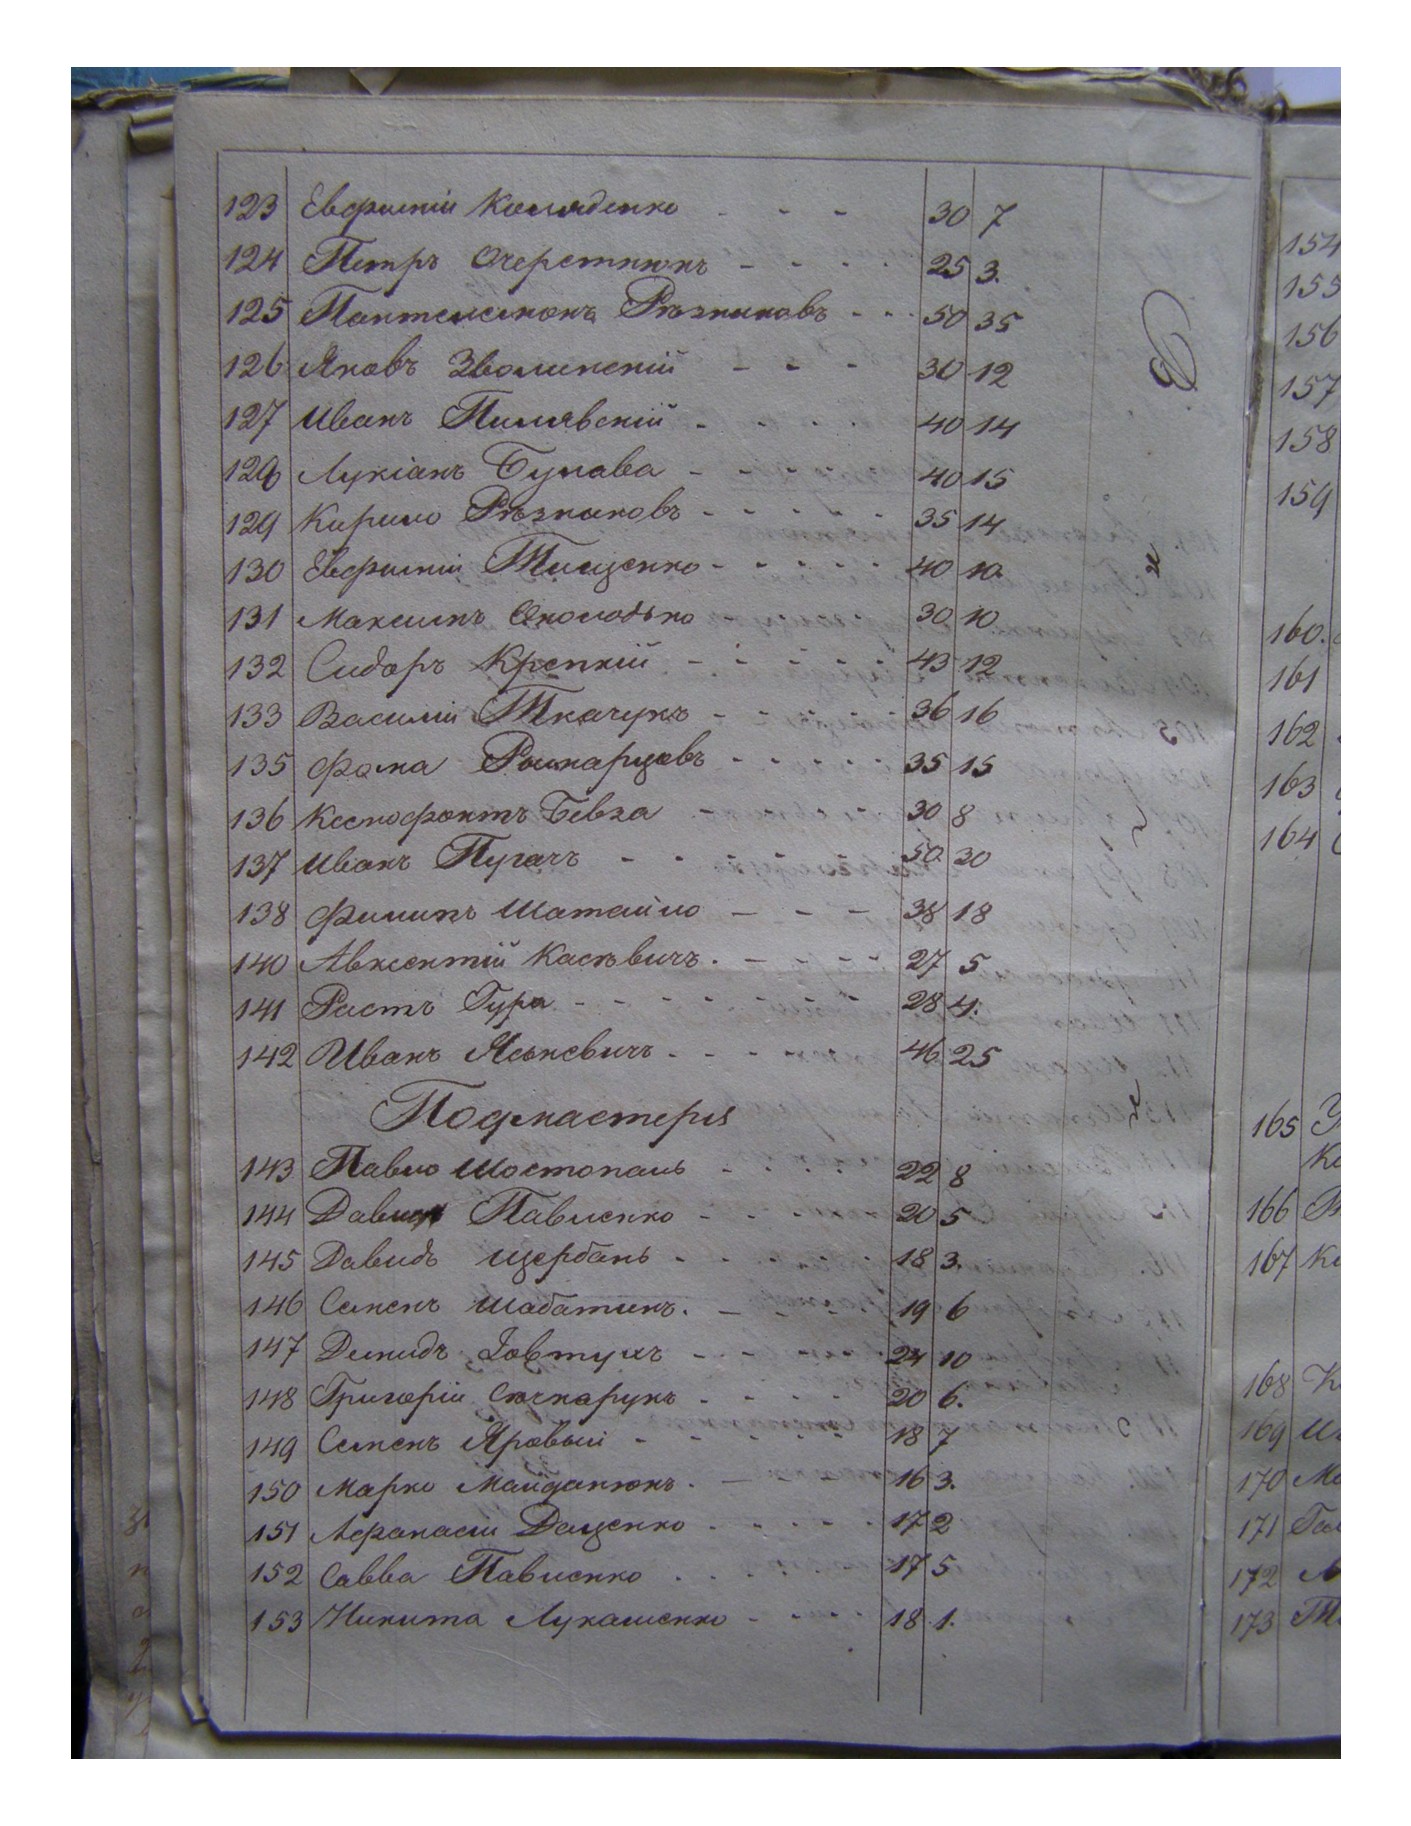 123 Евфимій Коляденко - - - 30 7
124 Петръ Очеретнюкъ - - - - 25 3.
125 Пантелеимонъ Рѣзниковъ - - - 50 35
126 Яковъ Зволинскій - - - 30 12
127 Иванъ Пилявскій - - - - 40 14
128 Лукіанъ Булава - - - - - 40 15
129 Кирило Рѣзниковъ - - - - - 35 14
130 Евфимій Тищенко - - - - - 40 10.
131 Максимъ Околодько - - - - 30 10
132 Сидоръ Крепкій - - - - - 43 12
133 Василій Ткачукъ - - - - - 36 16
135 Фома Рымарцовъ - - - - - 35 15
136 Ксенофонтъ Бевза - - - - - 30 8
137 Иванъ Пугачъ - - - - - - 50 30
138 Филипъ Шатайло - - - 38 18
140 Авксентій Касѣвичъ. - - - - 27 5
141 Ростъ Гура - - - - - - - 28 4.
142 Иванъ Яськевичъ - - - - - 46 25
Подмастерія
143 Павло Шостопаль - - - - 22 8
144 Павленко - - - - - 20 5
145 Давидъ Щербань - - - - - 18 3.
146 Семенъ Шабатинъ. - - - - 19 6
147 Демидъ Іовтухъ - - - - - 24 10
148 Григорій Сѣчкарукъ - - - - 20 6.
149 Семенъ Яровый - - - - - 18 7
150 Марко Майданюкъ. - - - 16 3.
151 Афанасій Даценко - - - - - 17 2
152 Савва Павленко - - - - - - 17 5
153 Никита Лукашенко - - - - 18 1.
154
155
156
157
158
159
160.
161
162
163
164
165
166
167
168
169
170
171
172
173